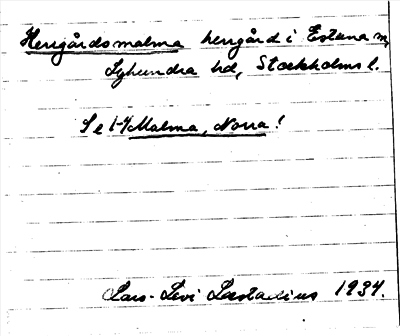 Herrgårdsmalma herrgård i Estuna sn,
Lyhundra hd, Stockholms l.
Se Malma, Norra!
Lars-Levi Læstadius 1934.